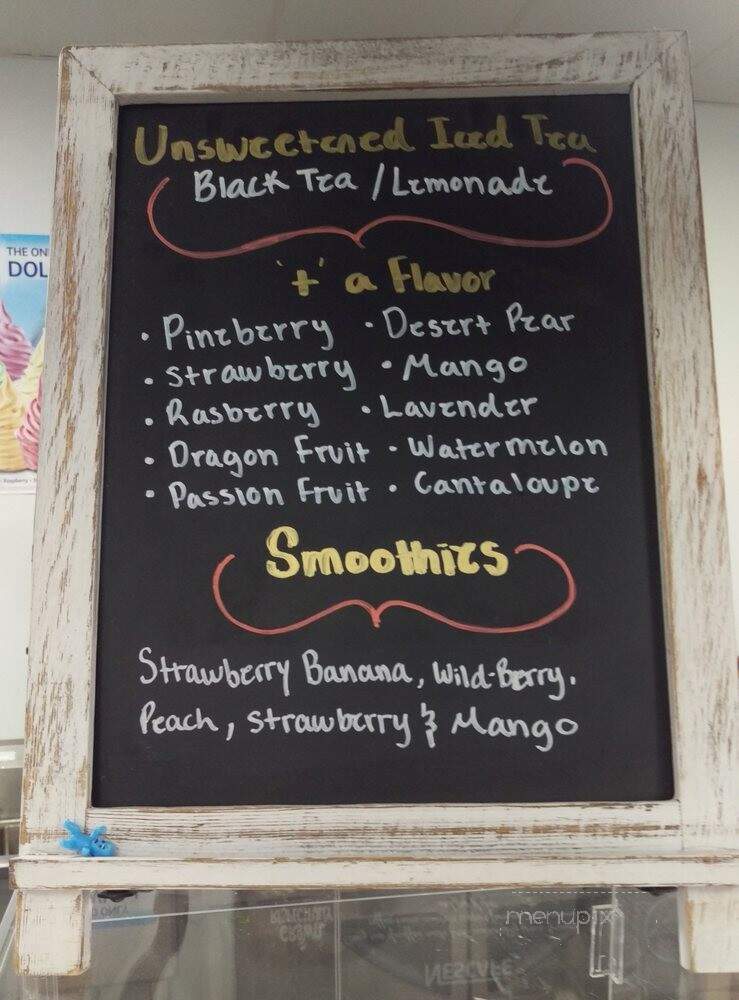 Unsweetened Iced Tea
Black Tea / Lemonade
'+' a Flavor
• Pineberry • Desert Pear
• Strawberry • Mango
• Rasberry • Lavender
• Dragon Fruit • Watermelon
• Passion Fruit • Cantaloupe
Smoothies
Strawberry Banana, Wild-Berry.
Peach, Strawberry & Mango
THE ON
DOL
menupix
NESCAFE